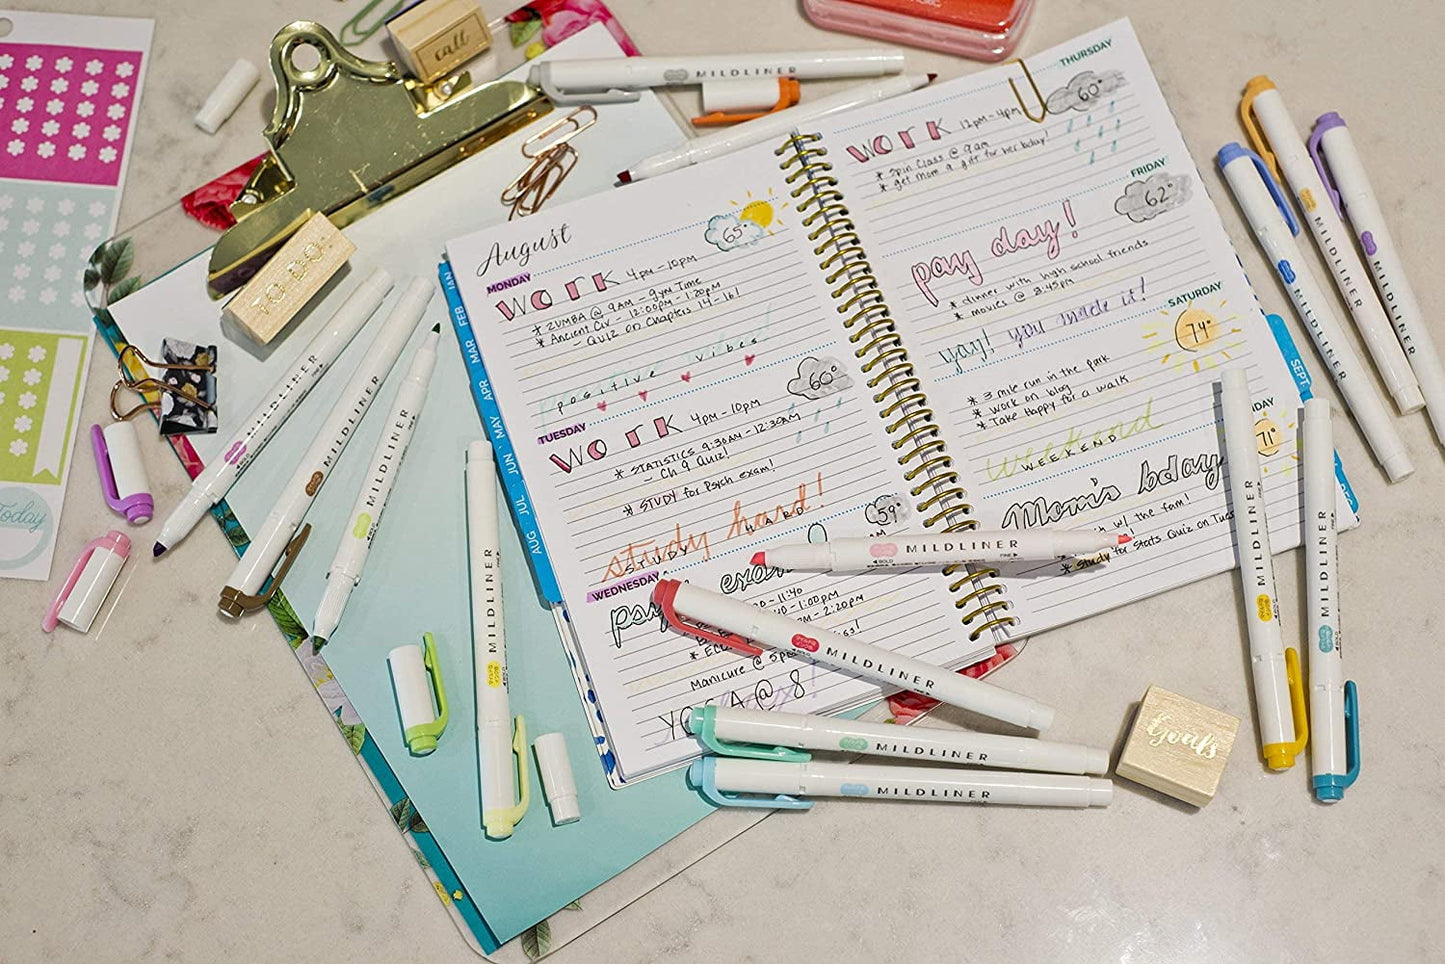 August
MONDAY
65°
WORK 4pm-10pm
* ZUMBA @ 9AM - gym Time
* Ancient Civ - 12:00pm-1:20pm
- Quiz on Chapters 14-16!
positive vibes
TUESDAY
60°
WORK 4pm-10pm
* STATISTICS 9:30AM-12:30AM
- Ch 9 Quiz!
* STUDY for Psych exam!
study hard!
STUDY HARD
WEDNESDAY
59°
- 11:40
- 1:00pm
- 2:20pm
Manicure @ 5pm
YOGA @ 8
THURSDAY
60°
WORK 12pm-4pm
* Spin Class @ 9am
* get mom a gift for her bday!
FRIDAY
62°
pay day!
* dinner with high school friends
* movies @ 8:45pm
yay! you made it!
SATURDAY
74°
* 3 mile run in the park
* Work on blog
* Take Happy for a walk
weekend
WEEKEND
71°
Mom's bday
w/ the fam!
* Study for Stats Quiz on Tues
JAN
FEB
MAR
APR
MAY
JUN
JUL
AUG
SEPT
call
TO DO:
Goals
Today
MILDLINER
MILDLINER
MILDLINER
MILDLINER
MILDLINER
MILDLINER
FINE
BOLD
MILDLINER
FINE
MILDLINER
MILDLINER
MILDLINER
MILDLINER
MILDLINER
MILDLINER
MILDLINER